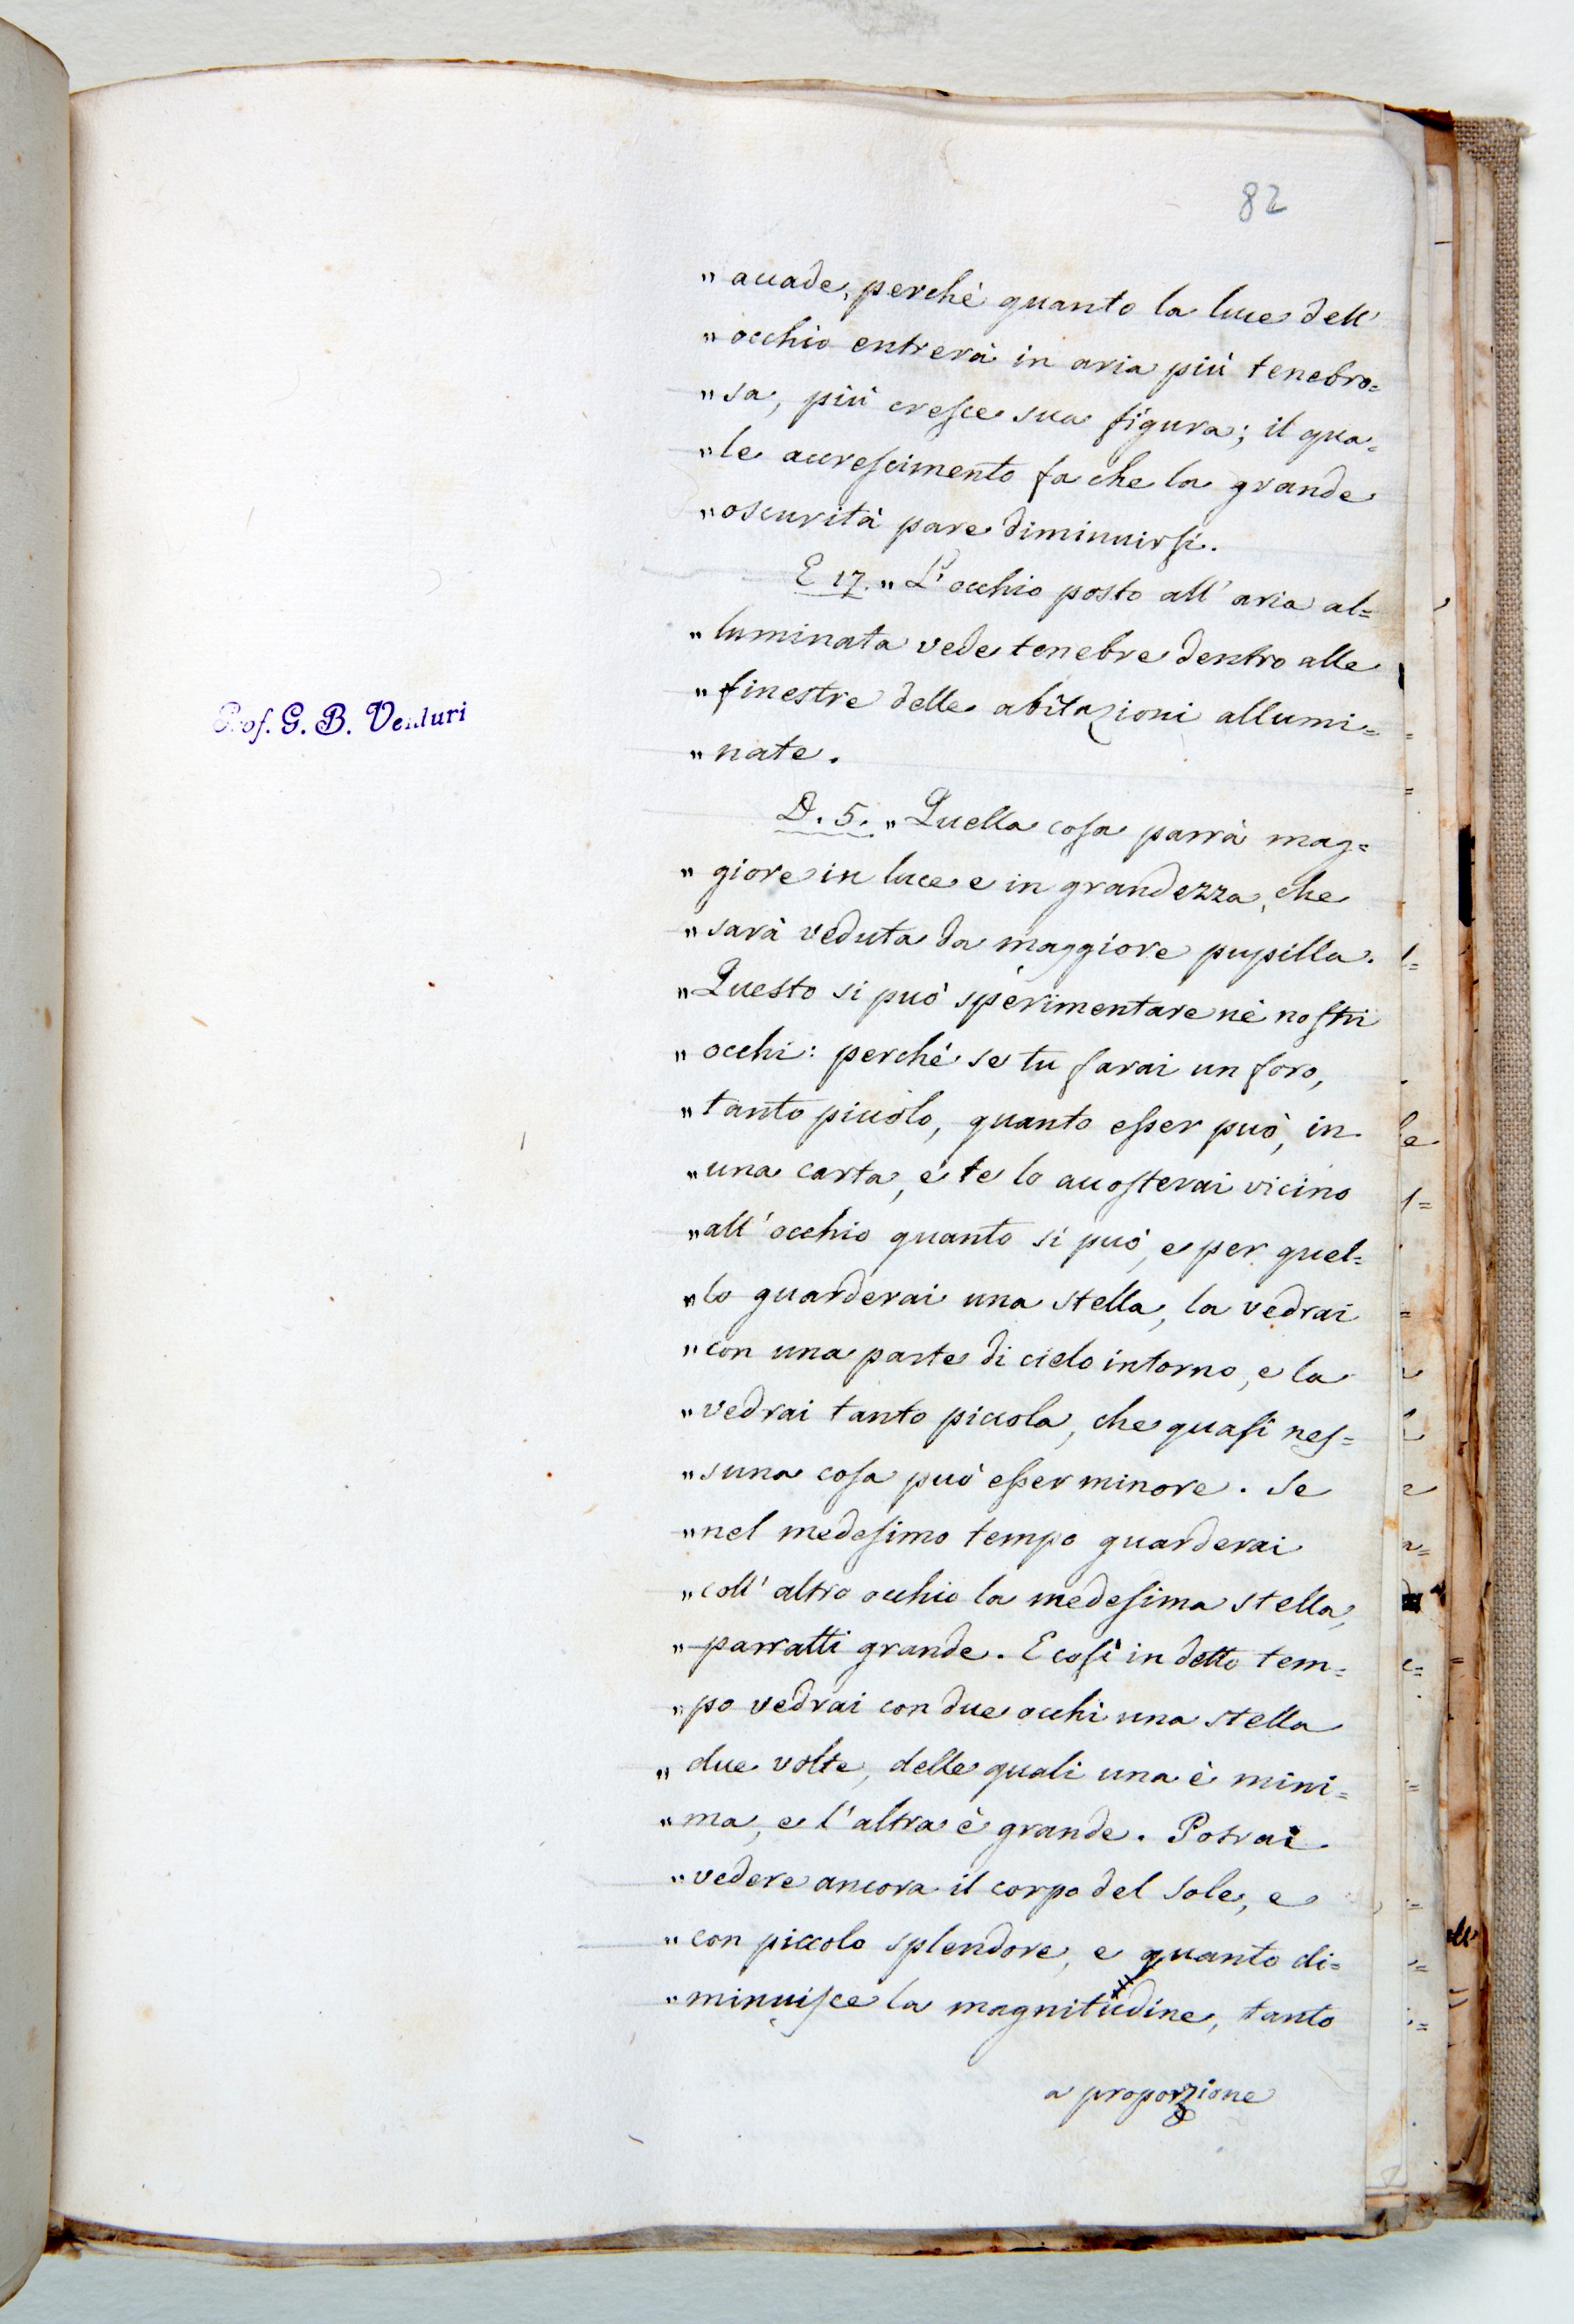 82
" accade, perchè quanto la luce dell'
" occhio entrerà in aria più tenebro=
" sa, più cresce sua figura; il qua=
" le accrescimento fa che la grande
" oscurità pare diminuirsi.
E 17. " L'occhio posto all'aria al=
" luminata vede tenebre dentro alle
" finestre delle abitazioni allumi=
" nate.
Prof. G. B. Venturi
D. 5. " Quella cosa parrà mag=
" giore in luce e in grandezza, che
" sarà veduta da maggiore pupilla.
" Questo si può sperimentare nè nostri
" occhi: perchè se tu farai un foro,
" tanto piccolo, quanto esser può, in
" una carta, e te lo accosterai vicino
" all'occhio quanto si può, e per quel=
" lo guarderai una stella, la vedrai
" con una parte di cielo intorno, e la
" vedrai tanto piccola, che quasi nes=
" suna cosa può esser minore. Se
" nel medesimo tempo guarderai
" coll'altro occhio la medesima stella,
" parratti grande. E così in detto tem=
" po vedrai con due occhi una stella
" due volte, delle quali una è mini=
" ma, e l'altra è grande. Potrai
" vedere ancora il corpo del Sole, e
" con piccolo splendore, e quanto di=
" minuisce la magnitudine, tanto
a proporzione